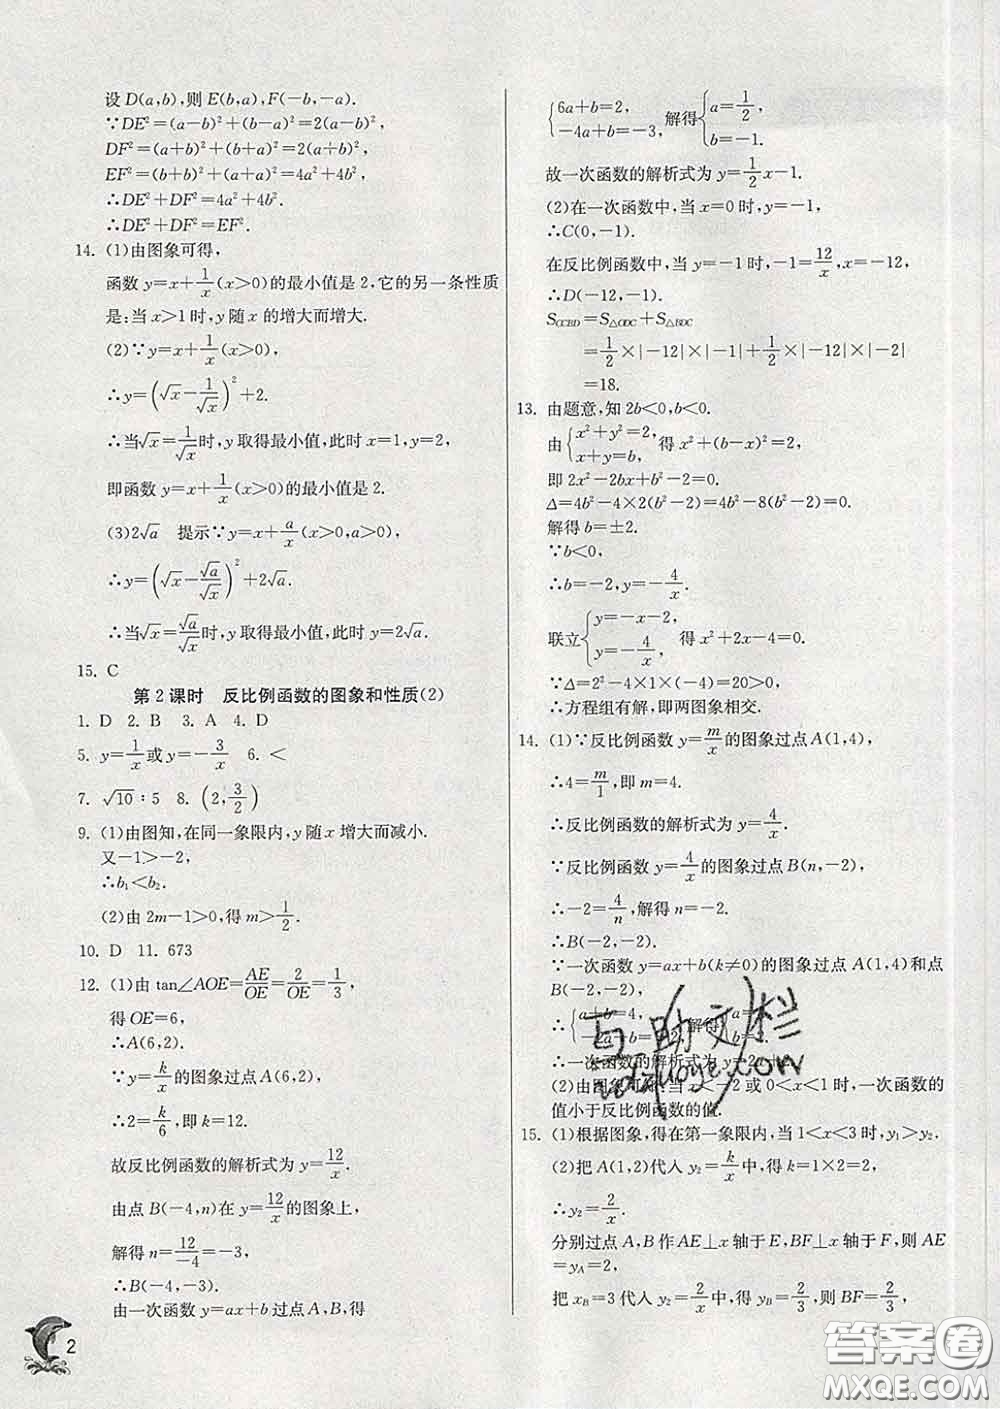 设 D(a,b),则 E(b,a),F(-b,-a).
∵DE²=(a-b)²+(b-a)²=2(a-b)²,
DF²=(a+b)²+(b+a)²=2(a+b)²,
EF²=(b+b)²+(a+a)²=4a²+4b².
∴DE²+DF²=4a²+4b².
∴DE²+DF²=EF².
14. (1)由图象可得,
函数 y=x+1/x(x>0)的最小值是 2,它的另一条性质
是:当 x>1 时,y 随 x 的增大而增大.
(2)∵y=x+1/x(x>0),
∴y=(√x-1/√x)²+2.
∴当√x=1/√x时,y 取得最小值,此时 x=1,y=2,
即函数 y=x+1/x(x>0)的最小值是 2.
(3)2√a 提示∵y=x+a/x(x>0),
∴y=(√x-√a/√x)²+2√a.
∴当√x=√a/√x时,y 取得最小值,此时 y=2√a.
15. C
第 2 课时 反比例函数的图象和性质(2)
1. D 2. B 3. A 4. D
5. y=1/x或 y=-3/x 6. <
7. √10∶5 8. (2,3/2)
9. (1)由图知,在同一象限内,y 随 x 增大而减小.
又-1>-2,
∴b₁<b₂.
(2)由 2m-1>0,得 m>1/2.
10. D 11. 673
12. (1)由 tan∠AOE=AE/OE=2/OE=1/3,
得 OE=6,
∴A(6,2).
∵y=k/x的图象过点 A(6,2),
∴2=k/6,即 k=12.
故反比例函数的解析式为 y=12/x.
由点 B(-4,n)在 y=12/x的图象上,
解得 n=12/-4=-3,
∴B(-4,-3).
由一次函数 y=ax+b 过点 A,B,得
{6a+b=2, -4a+b=-3, 解得{a=1/2, b=-1.
故一次函数的解析式为 y=1/2x-1.
(2)在一次函数中,当 x=0 时,y=-1,
∴C(0,-1).
在反比例函数中,当 y=-1 时,-1=12/x,x=-12,
∴D(-12,-1).
=1/2×|-12|×|-1|+1/2×|-12|×|-2|
=18.
13. 由题意,知 2b<0,b<0.
由{x²+y²=2, x+y=b, 得 x²+(b-x)²=2,
即 2x²-2bx+b²-2=0.
Δ=4b²-4×2(b²-2)=4b²-8(b²-2)=0.
解得 b=±2.
∵b<0,
∴b=-2,y=-4/x.
联立{y=-x-2, y=-4/x, 得 x²+2x-4=0.
∵Δ=2²-4×1×(-4)=20>0,
∴方程组有解,即两图象相交.
14. (1)∵反比例函数 y=m/x的图象过点 A(1,4),
∴4=m/1,即 m=4.
∴反比例函数的解析式为 y=4/x.
∵反比例函数 y=4/x的图象过点 B(n,-2),
∴-2=4/n,解得 n=-2.
∴B(-2,-2).
∵一次函数 y=ax+b(k≠0)的图象过点 A(1,4)和点
B(-2,-2),
∴{a+b=4, -2a+b=-2, 解得{a=
∴一次函数的解析式为 y=2x+2.
(2)由图象可知:当 x<-2 或 0<x<1 时,一次函数的
值小于反比例函数的值.
15. (1)根据图象,得在第一象限内,当 1<x<3 时,y₁>y₂.
(2)把 A(1,2)代入 y₂=k/x中,得 k=1×2=2,
∴y₂=2/x.
分别过点 A,B 作 AE⊥x 轴于 E,BF⊥x 轴于 F,则 AE
=yA=2,
把 xB=3 代入 y₂=2/x中,得 yB=2/3,则 BF=2/3,
2
互助文档
答案圈
MXQE.COM